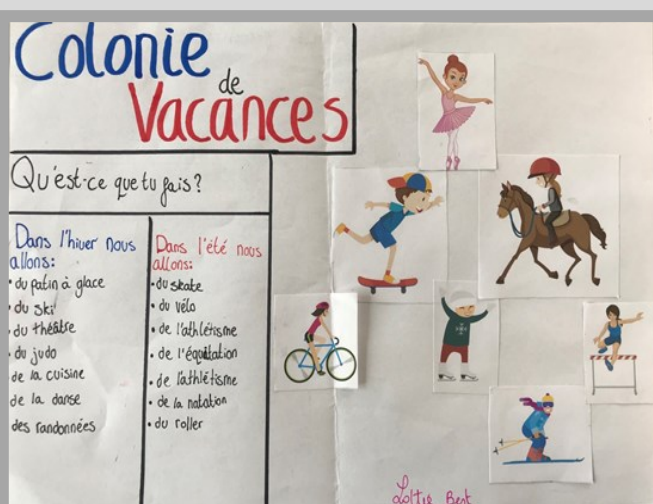 Colonie
de
Vacances
Qu'est-ce que tu fais?
Dans l'hiver nous
allons:
• du patin à glace
• du ski
• du théâtre
• du judo
de la cuisine
de la danse
des randonnées
Dans l'été nous
allons:
• du skate
• du vélo
• de l'athlétisme
• de l'équitation
• de l'athlétisme
• de la natation
• du roller
Best